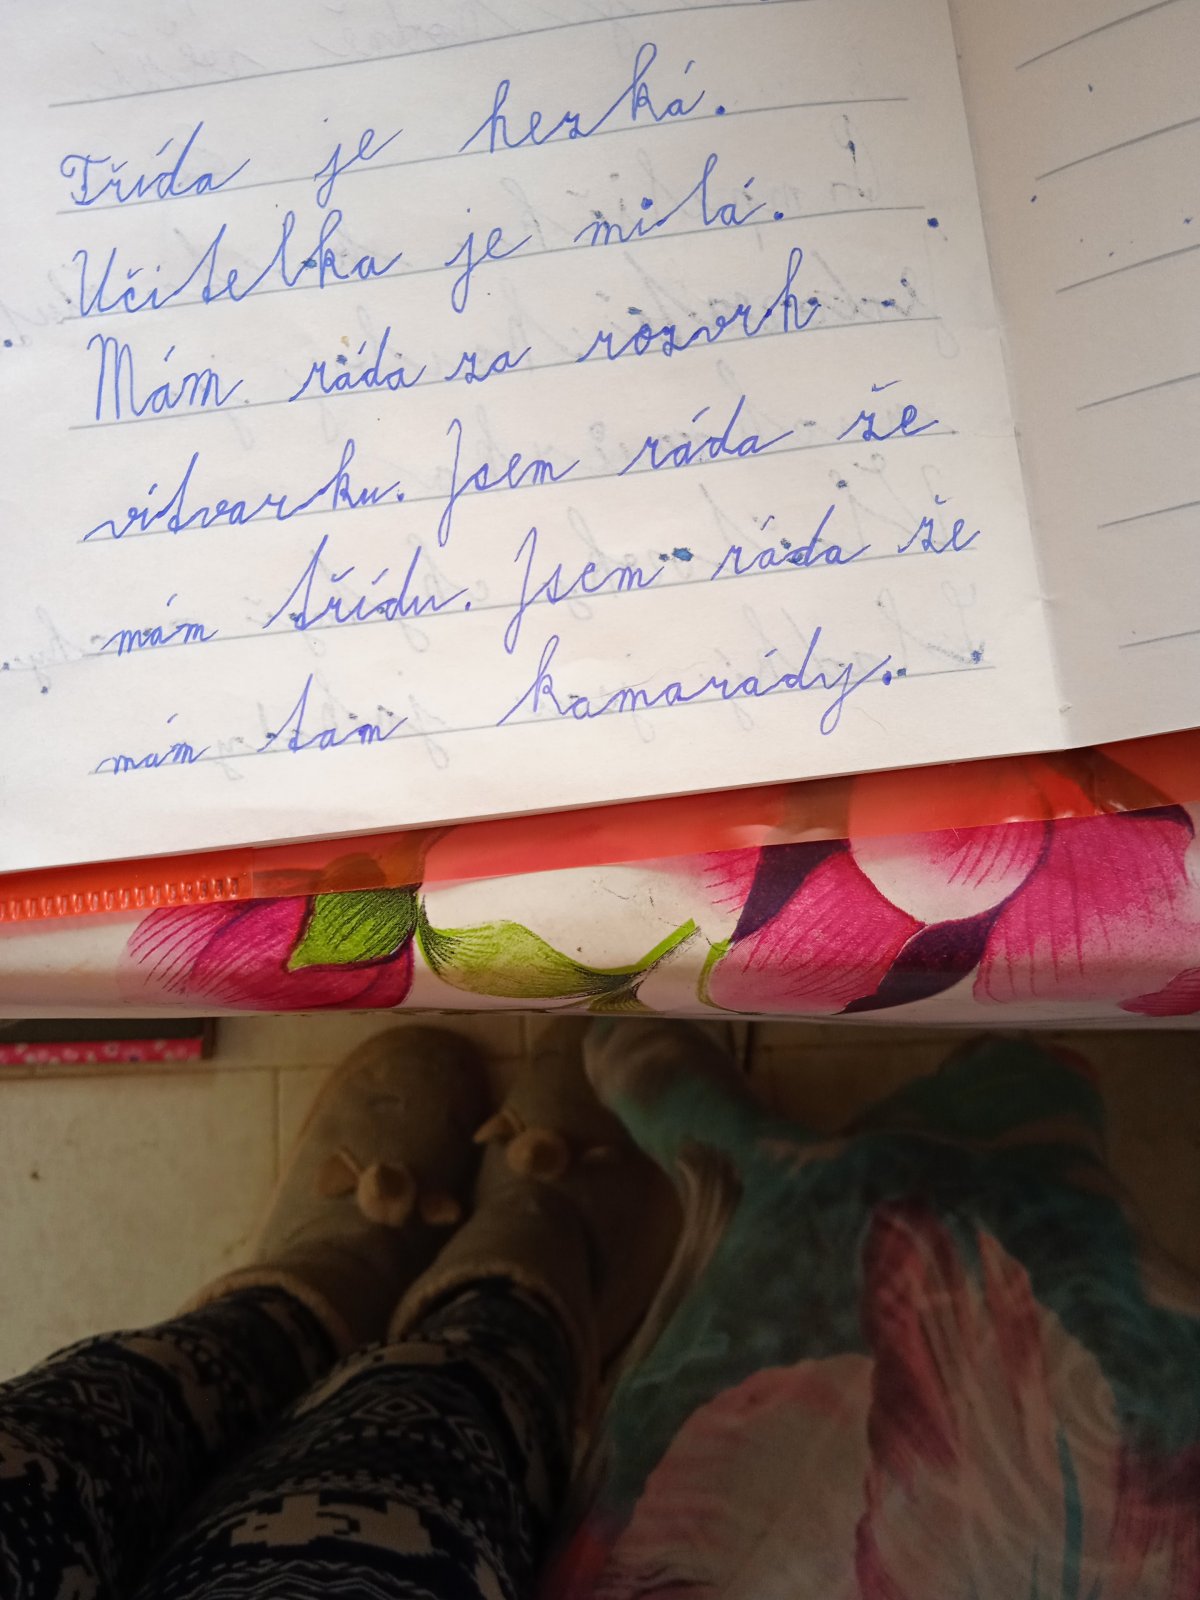 Třída je hezká.
Učitelka je milá.
Mám ráda za rozvrh
vítvarku. Jsem ráda že
mám třídu. Jsem ráda že
mám tam kamarády.